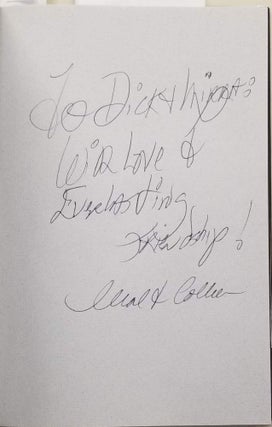 To Dick & Mirra:
With Love &
Everlasting
Friendship!
Collier